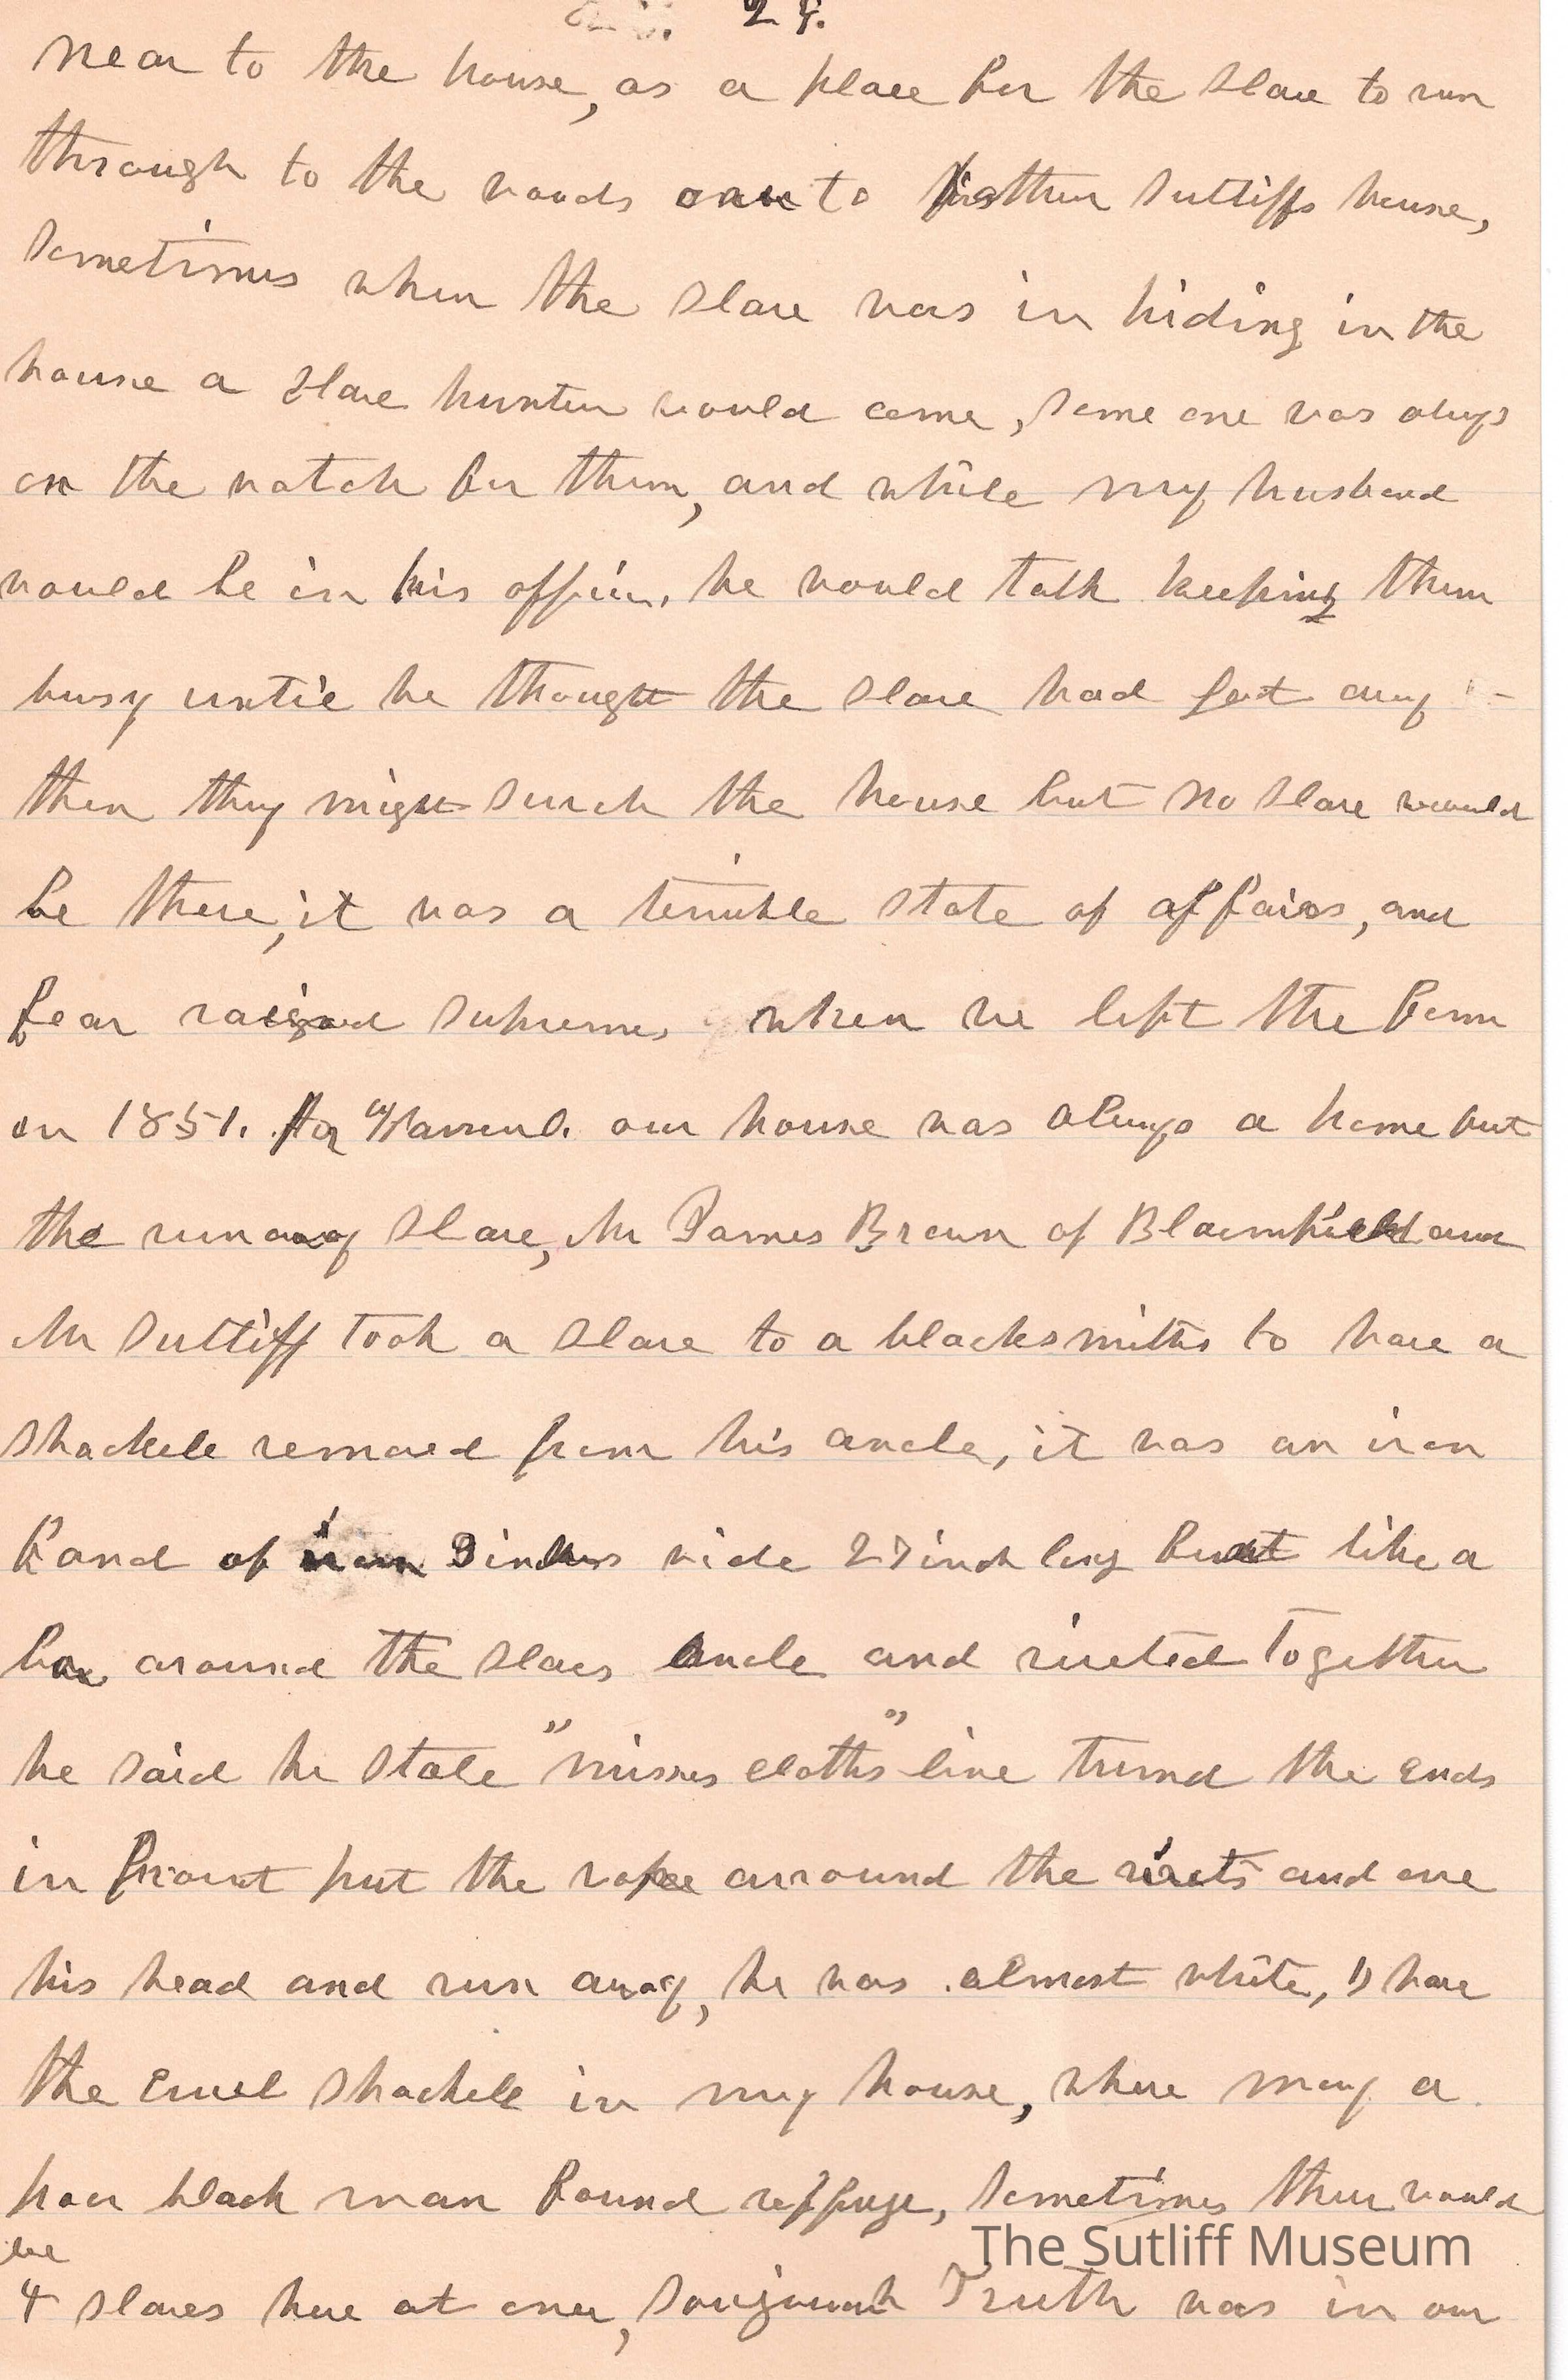 24.
near to the house, as a place for the slave to run
through to the woods or to father Sutliffs house,
Sometimes when the slave was in hiding in the
house a slave hunter would come, some one was always
on the watch for them, and while my husband
would be in his office, he would talk keeping them
busy until he thought the slave had got away
then they might search the house but no slave would
be there, it was a terrible state of affairs, and
fear raigned supreme, when we left the farm
in 1851. for Warren O. our house was always a home but
the runaway slave, Mr James Brown of Bloomfield and
Mr Sutliff took a slave to a blacksmiths to have a
shackele removed from his ancle, it was an iron
band of iron 3 inches wide 27 inch long bent like a
bow around the slaves ancle and riveted together
he said he stole "misses cloths" line turnd the ends
in front put the rope arround the rivets and over
his head and run away, he was almost white, I have
the cruel shackele in my house, where many a
poor black man found reffuge, Sometimes there would
be
4 slaves here at once, Soujournah Truth was in our
The Sutliff Museum